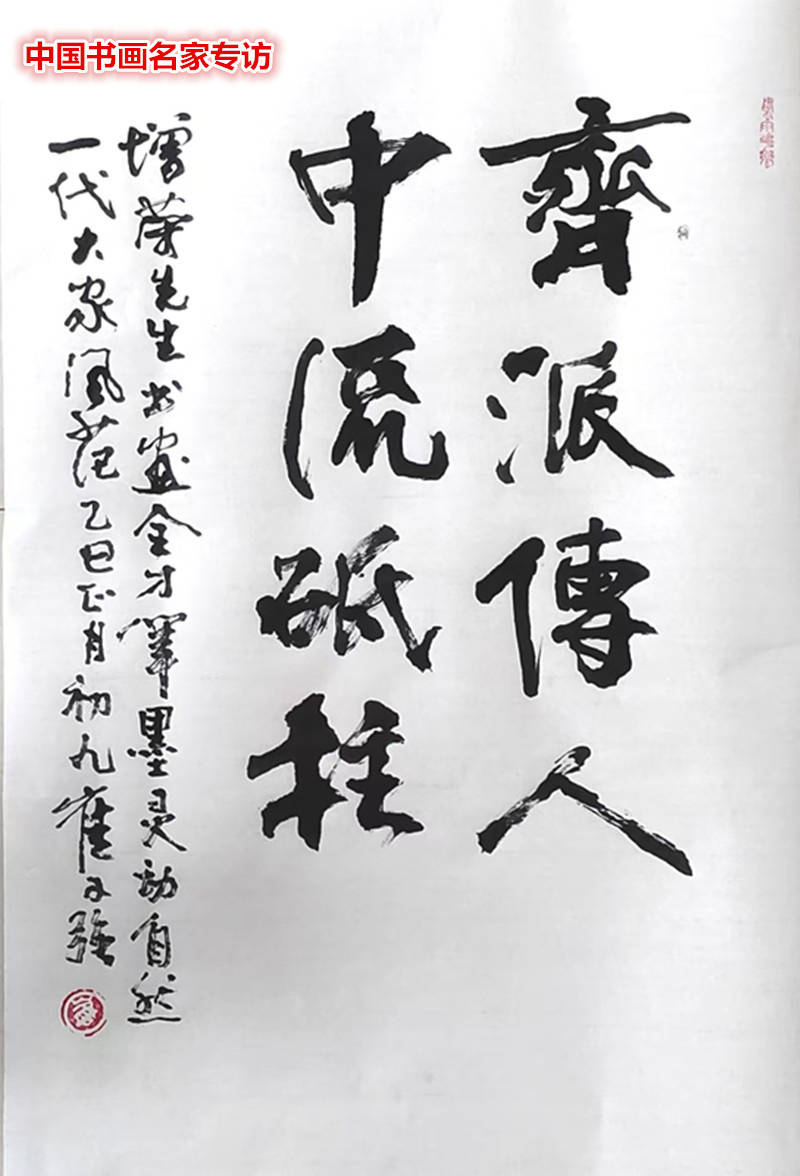 中国书画名家专访
齊派傳人
中流砥柱
增荣先生书画全才笔墨灵动自然
一代大家风范乙巳正月初九崔子强